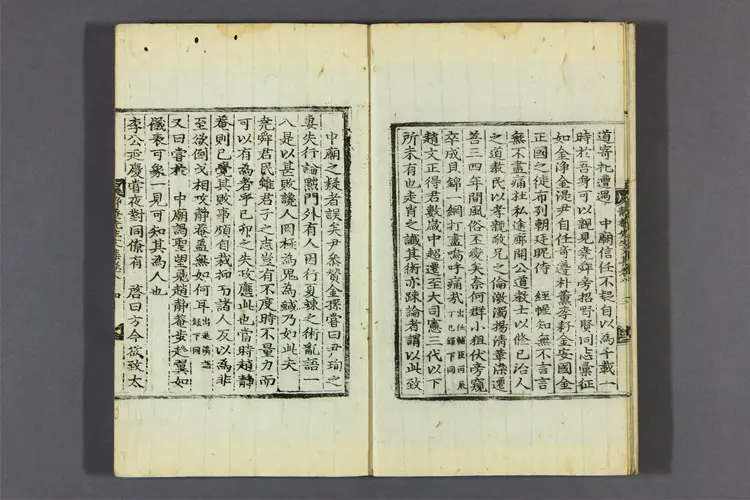 道寄托遭遇　中廟信任不契自以為千載一
時於吾身可以親見堯舜旁招野賢同志彙征
如金淨金湜尹自任奇遵朴薰李耔金安國金
正國之徒布列朝廷昵侍　經幄知無不言言
無不盡痛杜私逕廓開公道教士以修己治人
之道教民以孝親敬兄之倫激濁揚清華染遷
善三四年間風俗丕變矣奈何群小狙伏旁窺
卒成貝錦一網打盡嗚呼痛哉
趙文正得君數歲中超遷至大司憲三代以下
所未有也走肖之讖其術亦疎論者謂以此致
中廟之疑者誤矣尹參贊金孫嘗曰尹珣之
妻失行論黜門外有人因行夏𥠖之術亂語一
八是以甚敗讒人罔極為鬼為蜮乃如此夫
堯舜君民雖君子之志豈有不度時不量力而
可以有為者乎己卯之失政應此也當時趙靜
菴則已覺其敗事頗自裁抑而諸人反以為非
至欲倒戈相攻靜菴盖無如何耳
又曰嘗於　中廟謁聖望見趙靜菴步趨翼如
儀表可象一見可知其為人也
李公延慶嘗夜對同僚有　啓曰方今欲致太